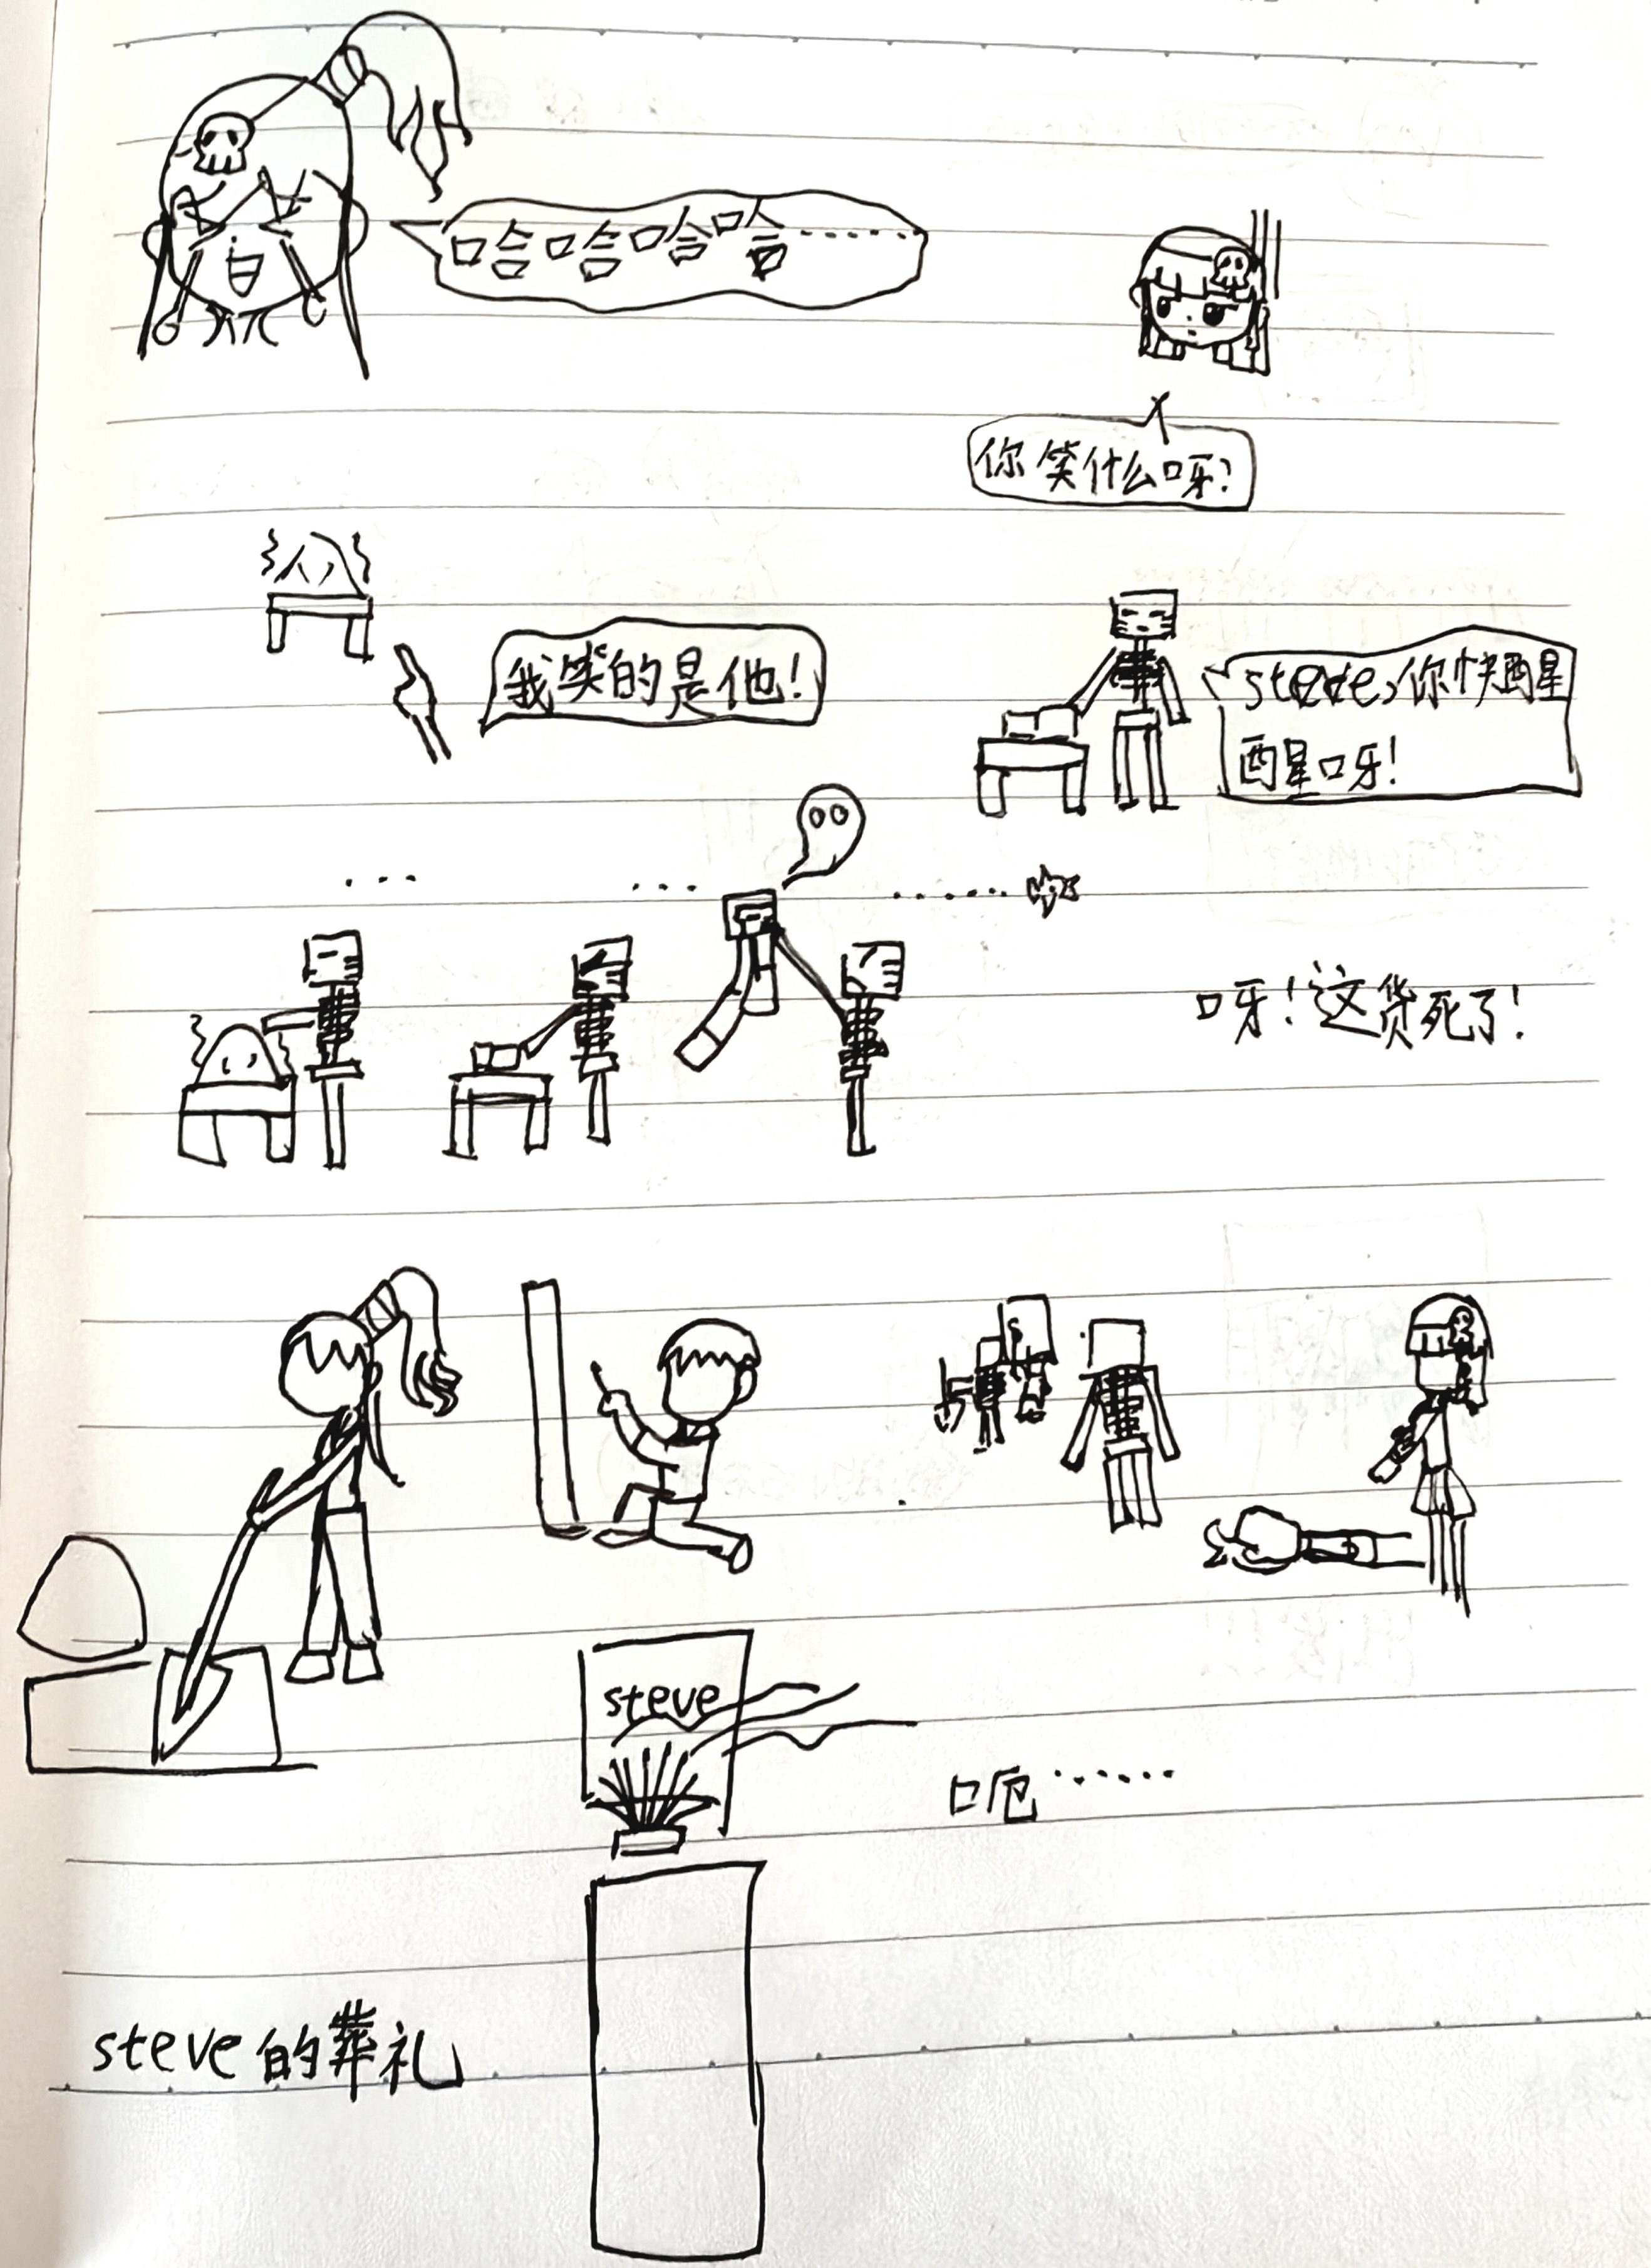 哈哈哈哈……
你笑什么呀?
我笑的是他!
steve,你快醒
醒呀!
... ... ......
呀!这货死了!
steve
呃……
steve的葬礼